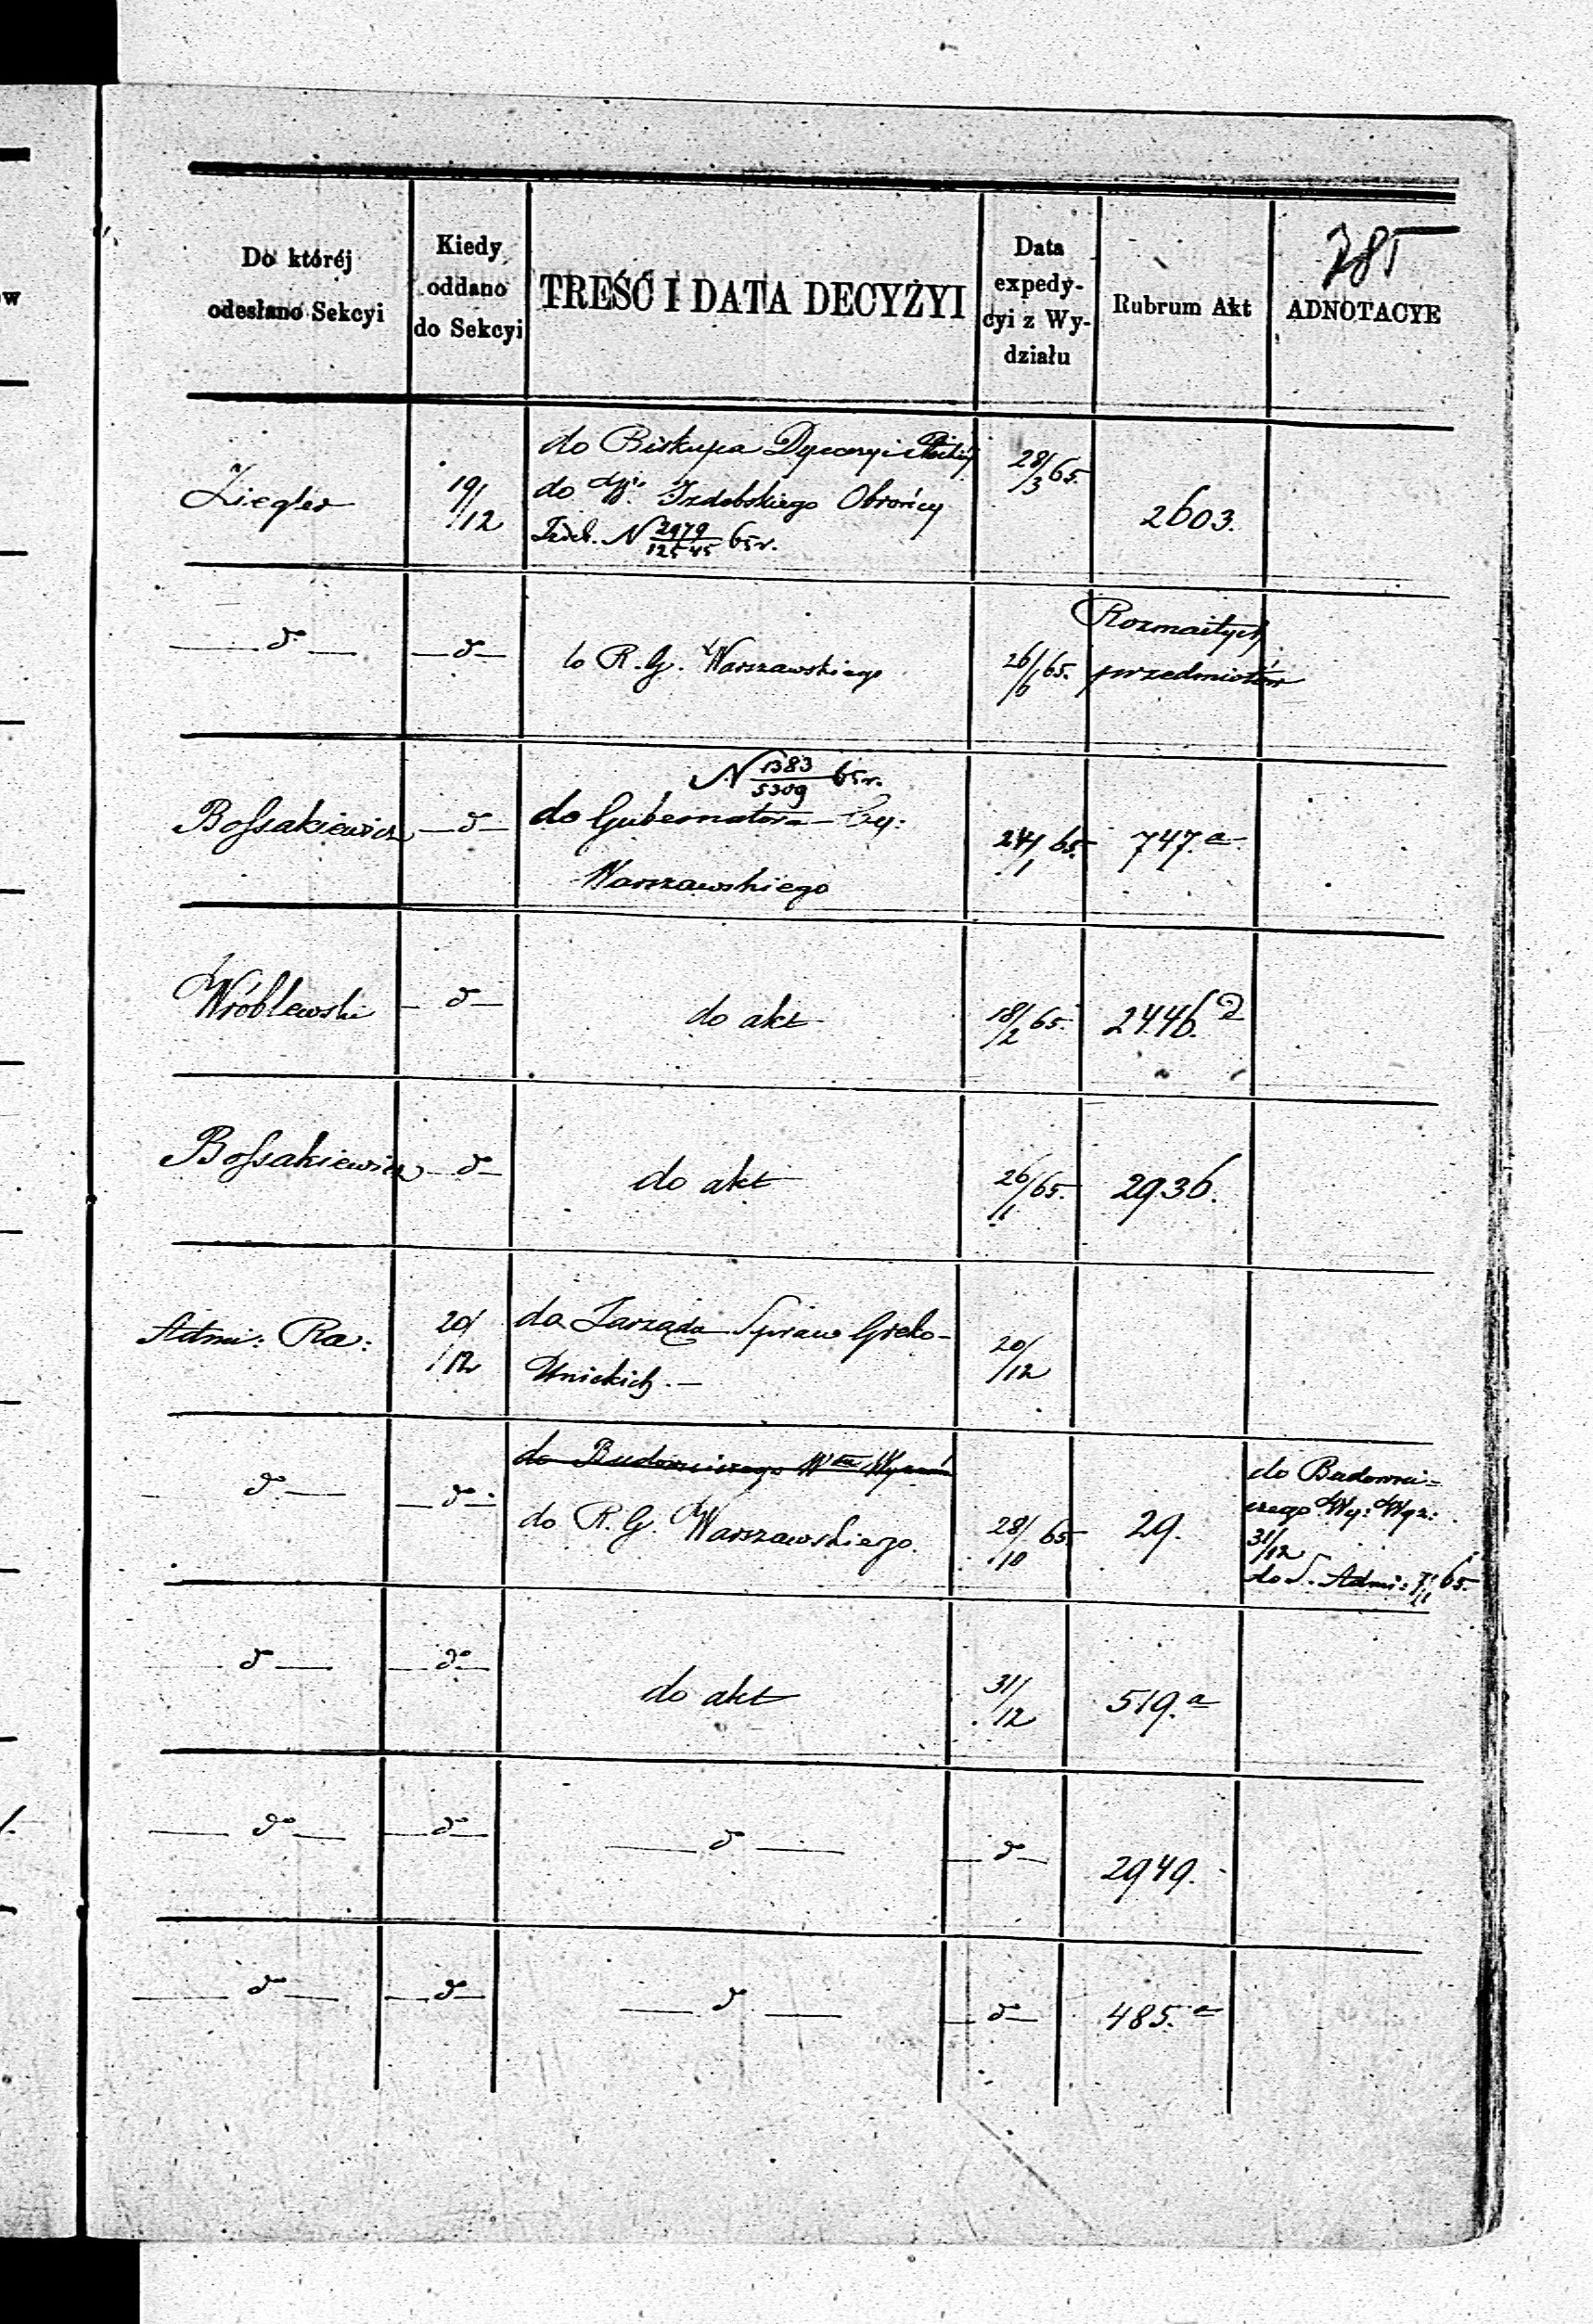 785
Do któréj
odesłano Sekcyi
Kiedy
oddano
do Sekcyi
TREŚĆ I DATA DECYZYI
Data
expedy-
cyi z Wy-
działu
Rubrum Akt
ADNOTACYE
Ziegler
19/12
do Biskupa Dyecezyi
do Izdebskiego Obrońcy
N 2979/12545 65 r.
28/3 65.
2603.
do
do
do R. G. Warszawskiego
26/6 65.
Rozmaitych
przedmiotów
Bossakiewicz
do
N 1383/5309 65 r.
do Gubernatora Cy:
Warszawskiego
24/1 65.
747.a
Wróblewski
do
do akt
18/2 65.
2446.
Bossakiewicz
do
do akt
26/1 65.
2936.
Admi: Ra:
20/12
do Zarządu Spraw Greko-
Unickich.—
20/12
do
do
do Budowniczego
do R. G. Warszawskiego.
28/10 65.
29.
do Budowni=
czego Wy: Wyz:
31/12
do S. Admi: 7/1 65.
do
do
do akt
31/12
519.a
do
do
do
do
2949.
do
do
do
do
485.a